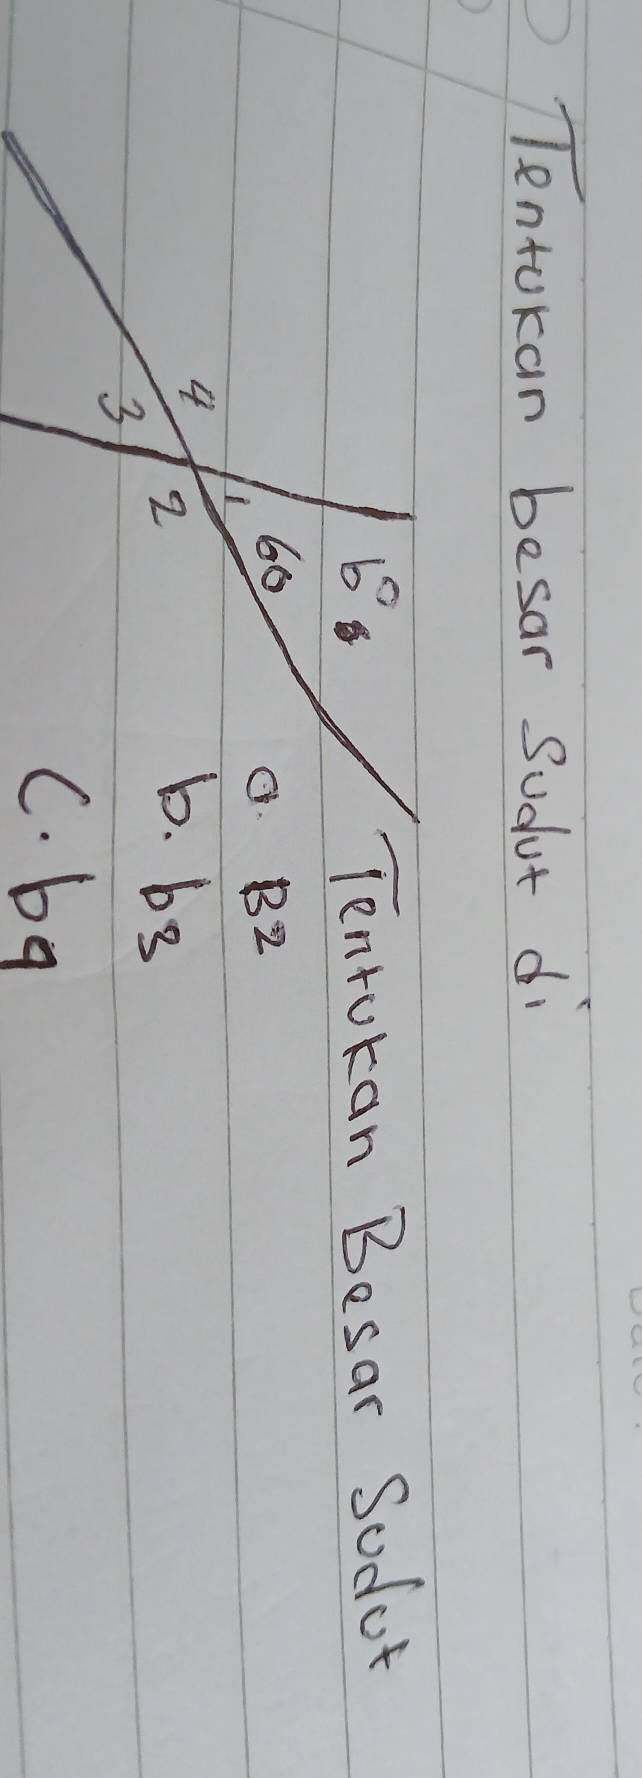 Tentukan besar Sudut di
b°
Tentukan Besar Sudut
60
1
4
a. B2
2
3
b. b3
C. b9